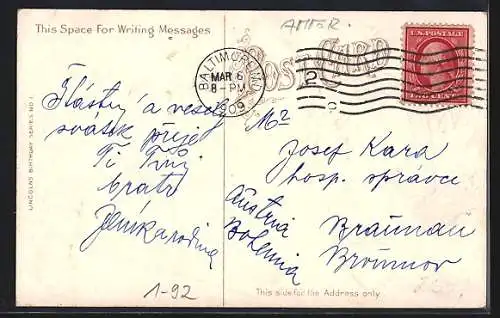 This Space For Writing Messages
AMER.
Post Card
BALTIMORE, MD.
MAR 6
8-PM
1909
2
U.S. POSTAGE
TWO CENTS
Šťastný a veselý
svátek přeje
Ti Tvůj
bratr
Jeník a rodina
Mr
Josef Kara
hosp. správce
Braunau
Broumov
Austria
Bohemia
1-92
This side for the Address only
LINCOLN'S BIRTHDAY SERIES NO. 1